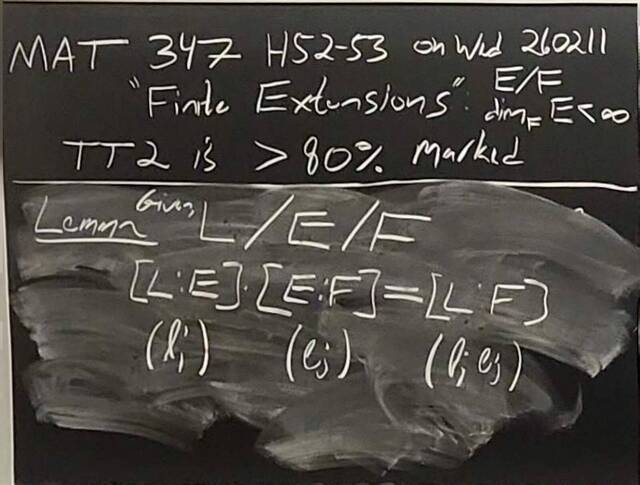 MAT 347 H52-53 on Wed 260211
"Finite Extensions": E/F
dim_F E < ∞
TT2 is > 80% marked
Lemma Given L/E/F
[L:E]·[E:F]=[L:F]
(l_i) (e_j) (l_i e_j)